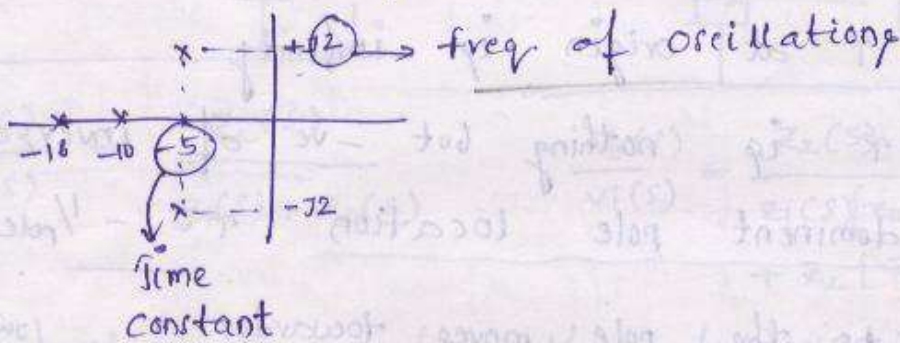 +J2 → freq of oscillations
-16 -10 -5
-J2
Time
constant